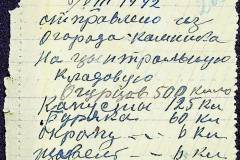 VIII 1942
отправлено из
огорода-
на центральную
кладовую
Огурцов 500 кило
Капусты 125 кл
Бурака 60 кл
6 кл
6 кл